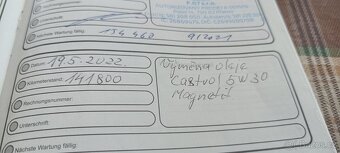 Unterschrift:
Nächste Wartung fällig:
154 460 9/2021
Datum: 19.5.2022
Kilometerstand: 141800
Rechnungsnummer:
Unterschrift:
Nächste Wartung fällig:
Výměna oleje
Castrol 5W30
Magnetě